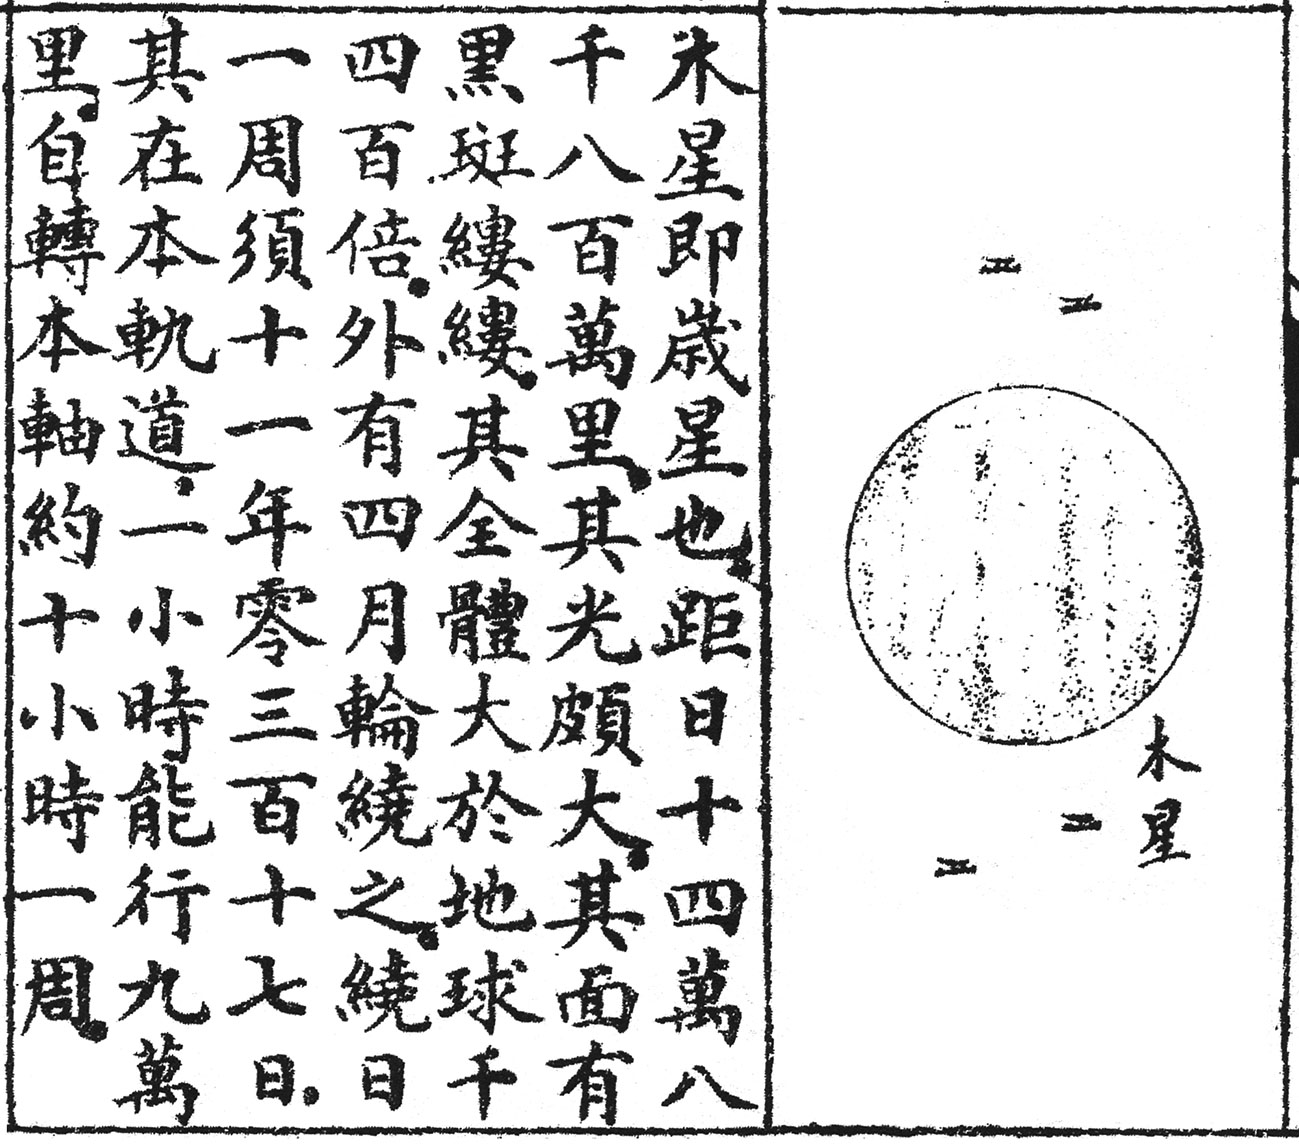 木星
木星即歲星也。距日十四萬八
千八百萬里。其光頗大。其面有
黑斑縷縷。其全體大於地球千
四百倍。外有四月輪繞之。繞日
一周須十一年零三百十七日。
其在本軌道。一小時能行九萬
里。自轉本軸約十小時一周。